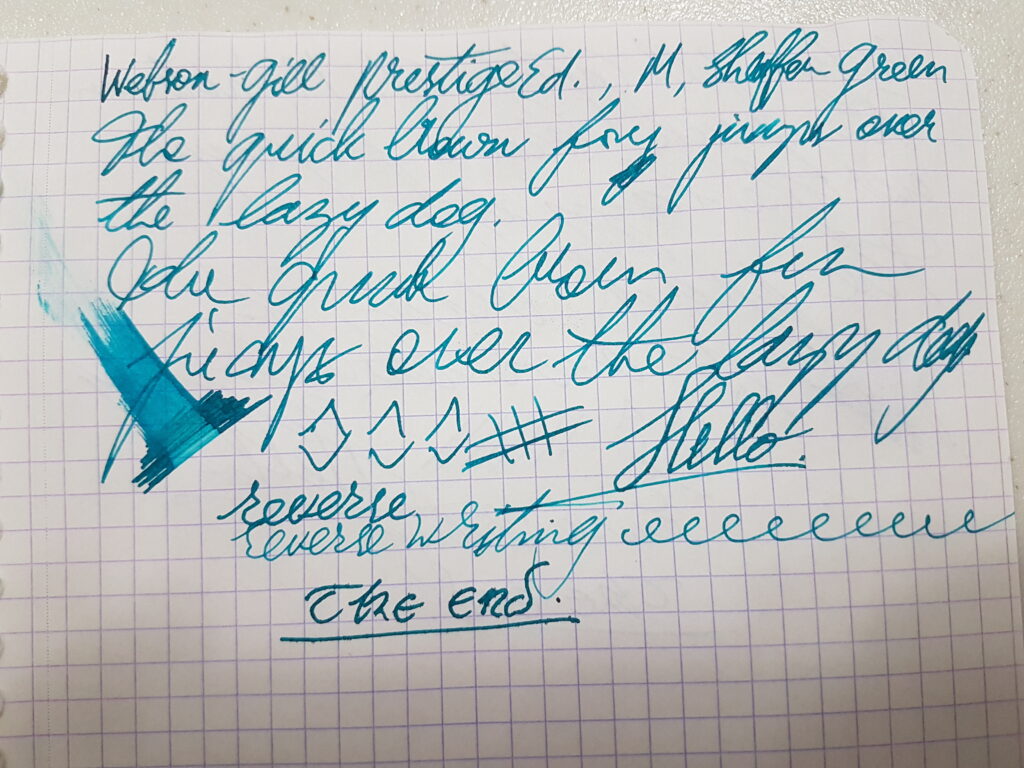 Webson-gill prestige Ed., M, Sheffer Green
The quick brown fox jumps over
the lazy dog.
The quick brown fox
jumps over the lazy dog
Hello!
reverse
reverse writing eeeeeeeee
The end.